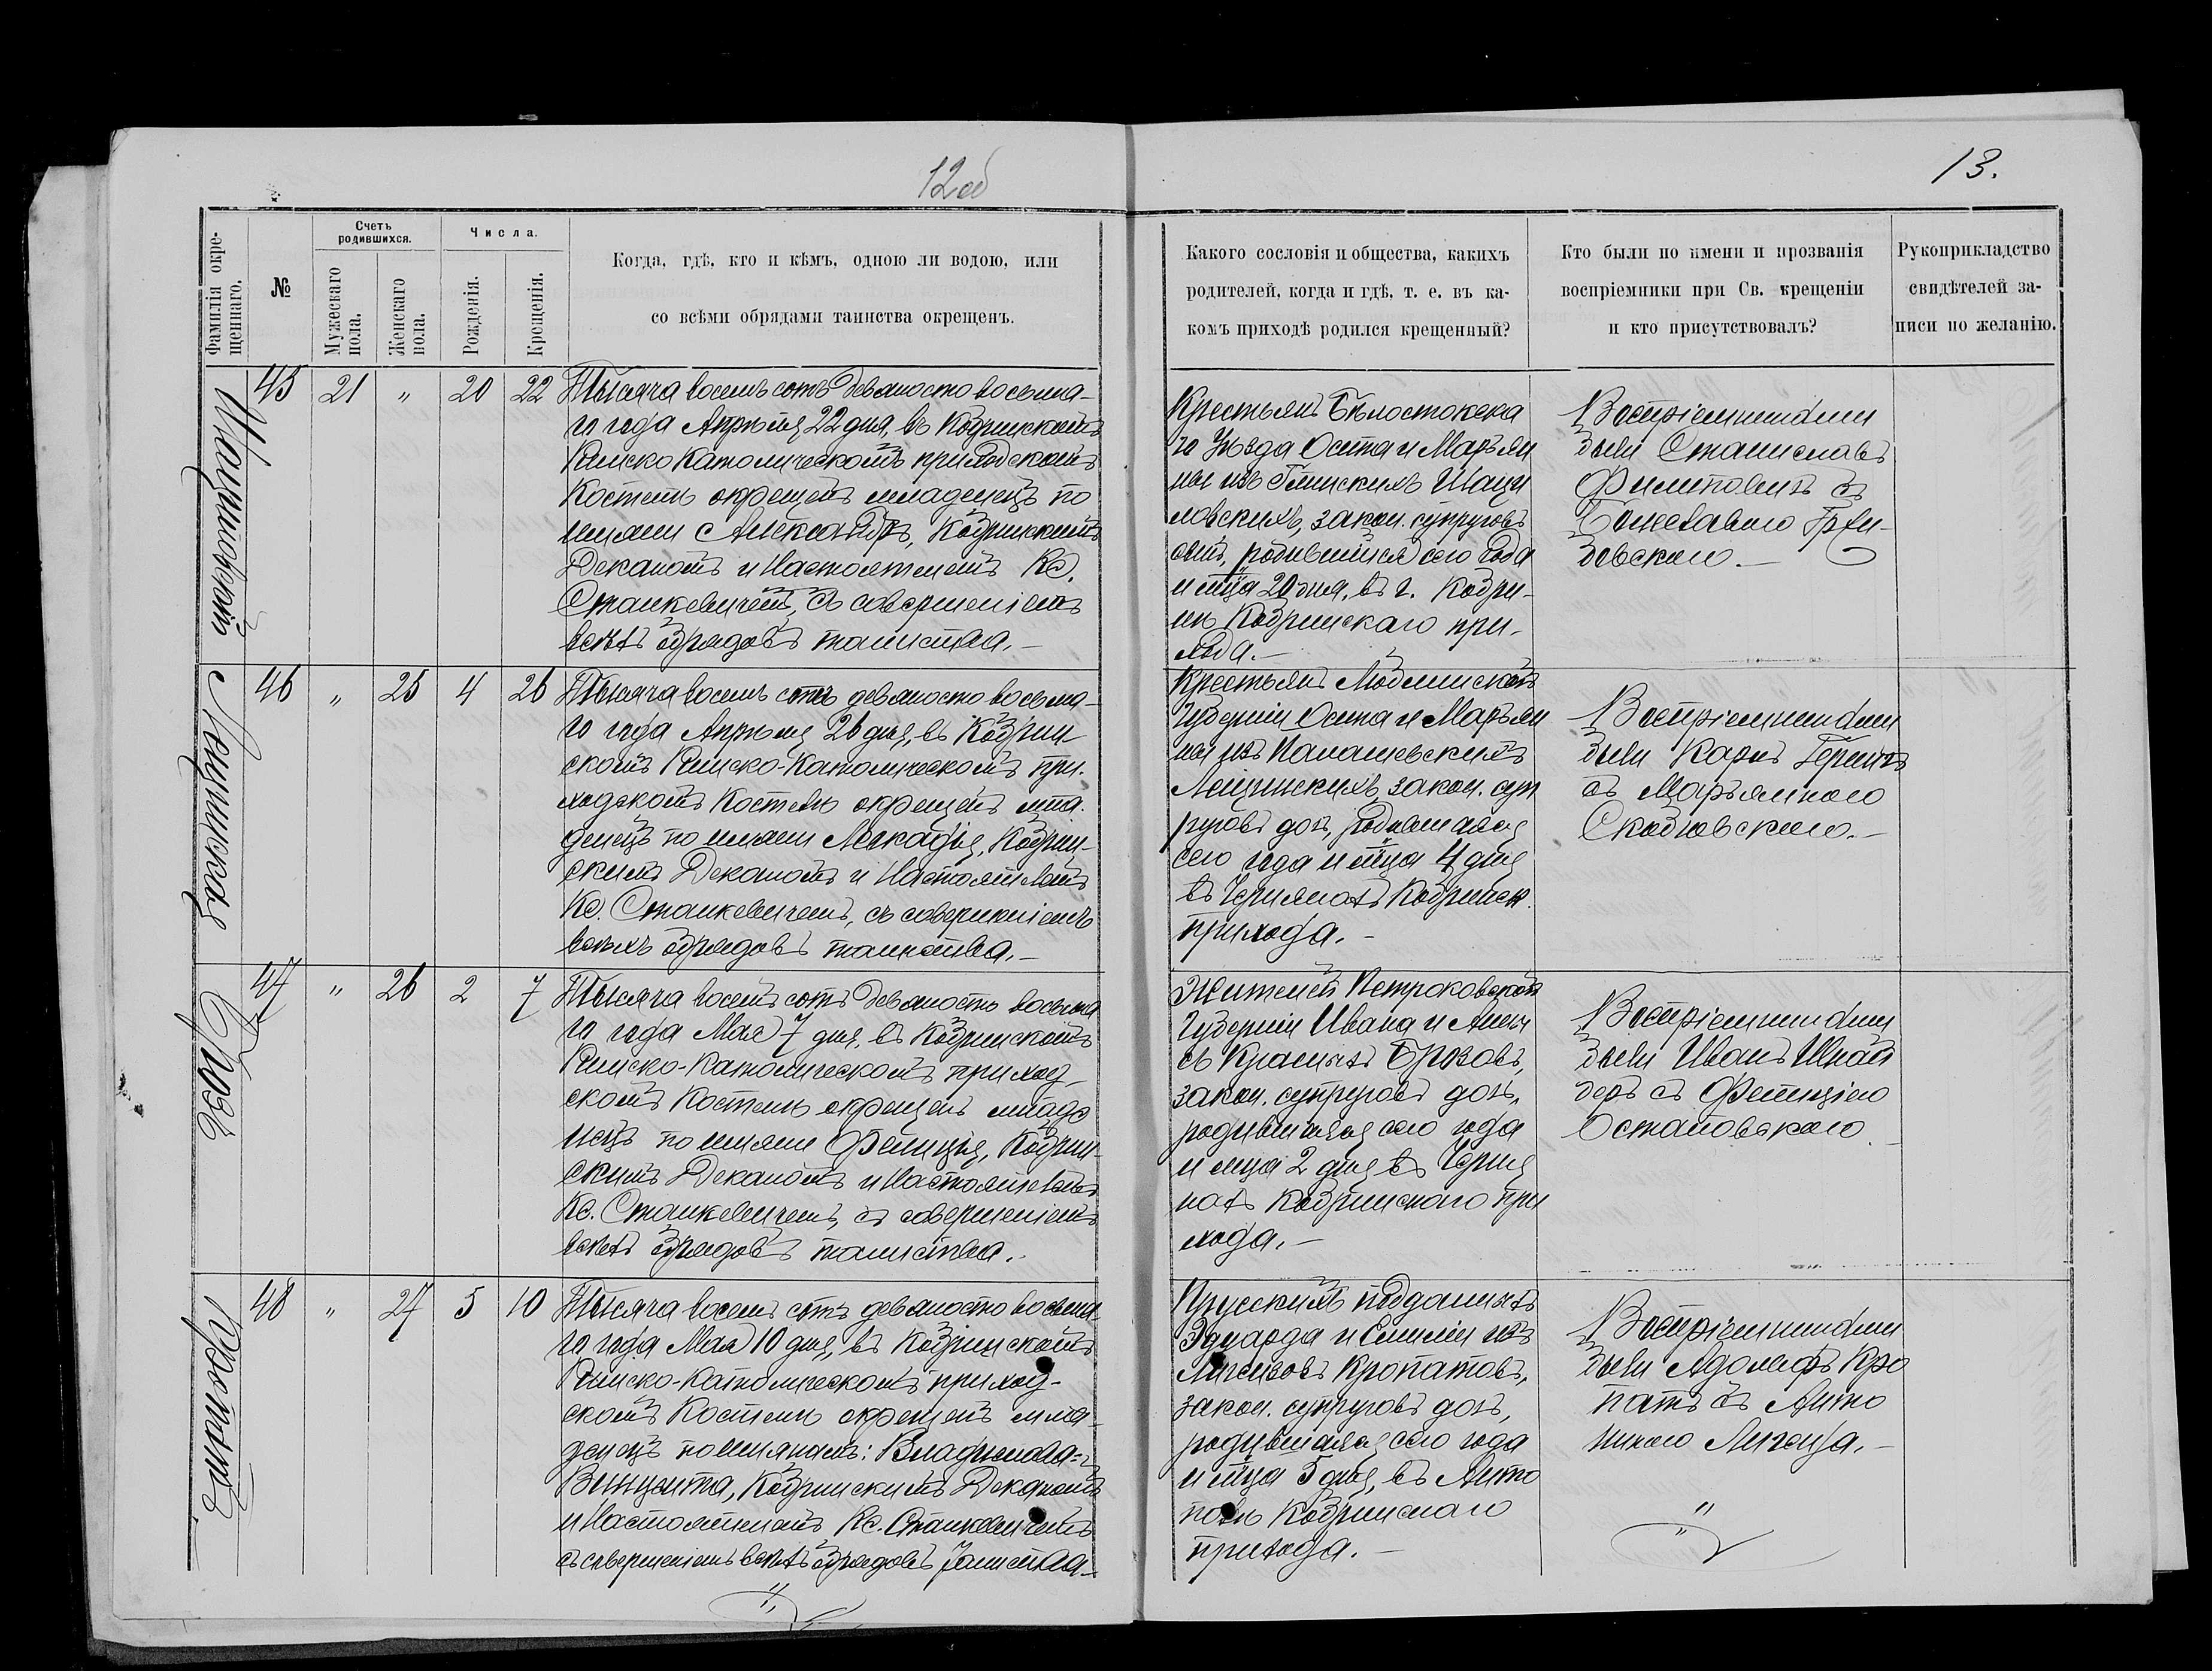 12об
13.
Фамилія окре-
щеннаго.
№
Счетъ
родившихся.
Мужескаго
пола.
Женскаго
пола.
Числа.
Рожденія.
Крещенія.
Когда, гдѣ, кто и кѣмъ, одною ли водою, или
со всѣми обрядами таинства окрещенъ.
Какого сословія и общества, какихъ
родителей, когда и гдѣ, т. е. въ ка-
комъ приходѣ родился крещенный?
Кто были по имени и прозванія
воспріемники при Св. крещеніи
и кто присутствовалъ?
Рукоприкладство
свидѣтелей за-
писи по желанію.
Шациловскій
45 21 " 20 22
Тысяча восемь сотъ девяносто восьма-
го года Апрѣля 22 дня, въ Кобринскомъ
Римско Католическомъ приходскомъ
Костелѣ окрещенъ младенецъ по
имени Александръ, Кобринскимъ
Деканомъ и Настоятелемъ Кс.
Станкевичемъ, съ совершеніемъ
всѣхъ обрядовъ таинства.-
Крестьянъ Бѣлостокска
го Уѣзда Осипа и Марьян
ны изъ Шаци
ловскихъ, закон. супруговъ
сынъ, родившійся сего года
и мца 20 дня, въ г. Кобри-
нѣ Кобринскаго при-
хода.-
Воспріемниками
были Станиславъ
Филиповичъ съ
довскою.-
Лещинская
46 " 25 4 26
Тысяча восемь сотъ девяносто восьма-
го года Апрѣля 26 дня, въ Кобрин
скомъ Римско-Католическомъ при-
ходскомъ Костелѣ окрещенъ мла-
денецъ по имени Леокадія, Кобрин-
скимъ Деканомъ и Настоятелемъ
Кс. Станкевичемъ, съ совершеніемъ
всѣхъ обрядовъ таинства.-
Крестьянъ Люблинской
Губерніи Осипа и Марьян
ны изъ
Лещинскихъ закон. суп
руговъ дочь, родившаяся
сего года и мца 4 дня
въ Кобринск.
прихода.-
Воспріемниками
были Карлъ
съ Марьянною
Скобловскою.-
Брозъ
47 " 26 2 7
Тысяча восемь сотъ девяносто восьма
го года Мая 7 дня, въ Кобринскомъ
Римско-Католическомъ приход-
скомъ Костелѣ окрещенъ младе
нецъ по имени Фелиція, Кобрин-
скимъ Деканомъ и Настоятелемъ
Кс. Станкевичемъ, съ совершеніемъ
всѣхъ обрядовъ таинства.
Жителей Петроковской
Губерніи Ивана и Анны
съ Брозовъ,
закон. супруговъ дочь,
родившаяся сего года
и мца 2 дня въ Черня
нахъ Кобринскаго при
хода.-
Воспріемниками
были Иванъ Шнай
деръ съ Фелиціею
Остаповскою
Кропатъ
48 " 27 5 10
Тысяча восемь сотъ девяносто восьма-
го года Мая 10 дня, въ Кобринскомъ
Римско-Католическомъ приход-
скомъ Костелѣ окрещенъ мла-
денецъ по именамъ: Владислава-
Винцента, Кобринскимъ Деканомъ
и Настоятелемъ Кс. Станкевичемъ
съ совершеніемъ всѣхъ обрядовъ таинства-
Прусскихъ подданныхъ
Эдуарда и Емиліи изъ
Кропатовъ,
закон. супруговъ дочь,
родившаяся сего года
и мца 5 дня, въ Анто
полѣ Кобринскаго
прихода.-
Воспріемниками
были Адольфъ Кро
патъ съ Анто
ниною